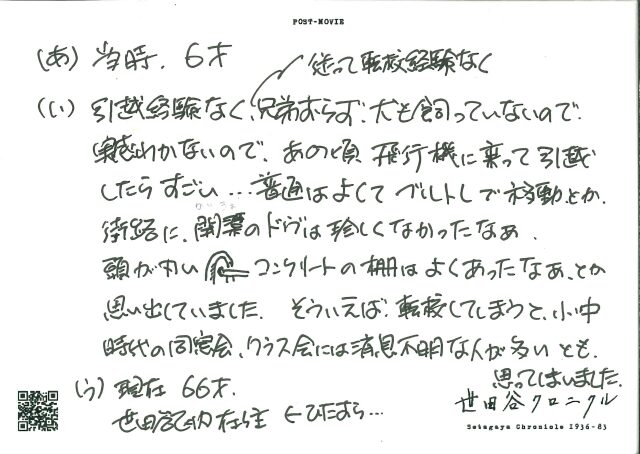 POST-MOVIE
(あ) 当時、6才
従って転校経験なく
(い) 引越経験なく、兄弟おらず、犬も飼っていないので、
実感わかないので、あの頃 飛行機に乗って引越
したらすごい…普通はよくて ベルトレで移動とか、
街路に、のドヴは珍しくなかったなあ、
頭が丸い コンクリートの棚はよくあったなあ、とか
思い出していました。そういえば、転校してしまうと、小中
時代の同窓会、クラス会には消息不明な人が多いとも、
思ってはいました。
(う) 現在 66才、
世田谷区内在住 ←ひたすら…
世田谷クロニクル
Setagaya Chronicle 1936-83